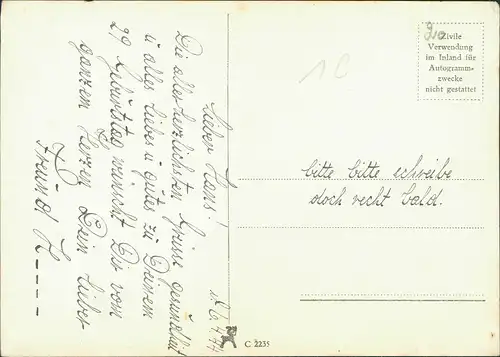 Lieber Hans!
Die allerherzlichsten Grüsse Gesundheit
u alles Liebes u gutes zu Deinem
29 Geburtstag wünscht Dir vom
ganzem Herzen Dein Lieber
Freund H-----
1C
Zivile
Verwendung
im Inland für
Autogramm-
zwecke
nicht gestattet
bitte bitte schreibe
doch recht bald.
C 2235